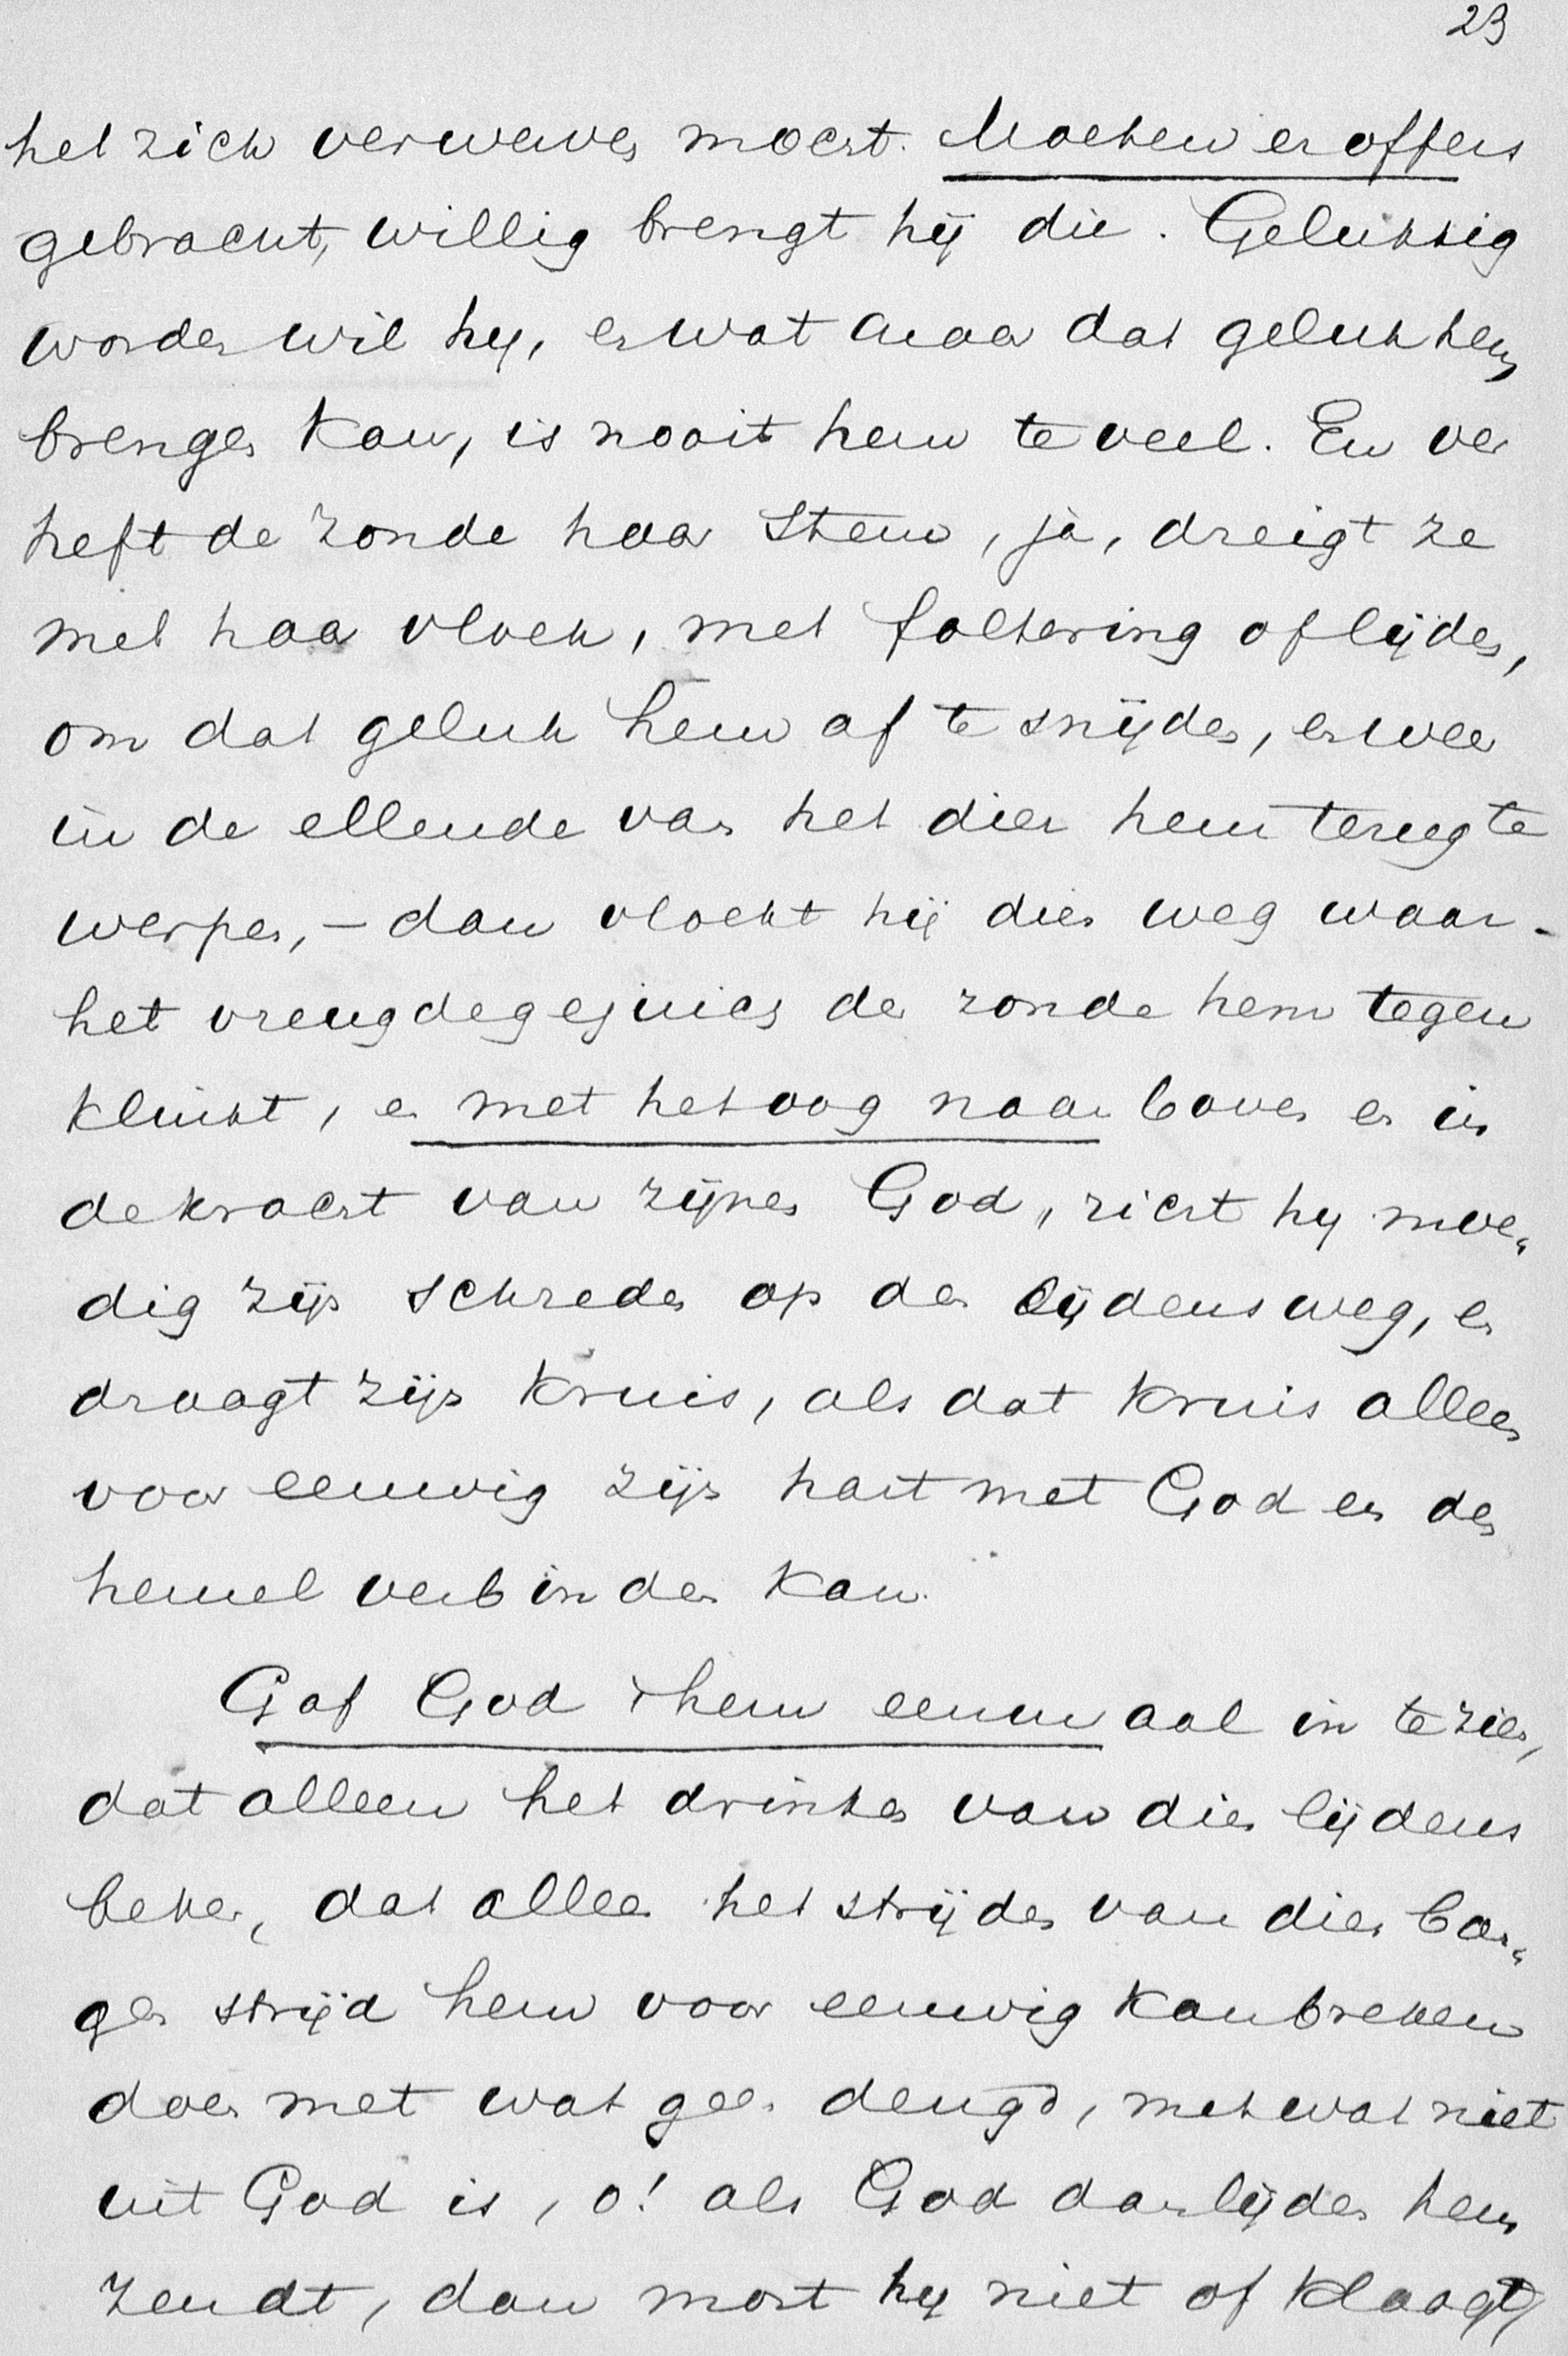 23
het zich verwerven mocht. Moeten er offers
gebracht, willig brengt hij die. Gelukkig
worden wil hij, en wat maar dat geluk hem
brengen kan, is nooit hem te veel. En ver
heft de zonde haar stem, ja, dreigt ze
met haar vloek, met foltering of lijden,
om dat geluk hem af te snijden, en weer
in de ellende van het dier hem terug te
werpen, – dan vloekt hij dien weg waar-
het vreugdegejuich der zonde hem tegen
klinkt, en met het oog naar boven en in
de kracht van zijnen God, richt hij moe„
dig zijn schreden op den lijdensweg, en
draagt zijn kruis, als dat kruis alleen
voor eeuwig zijn hart met God en den
hemel verbinden kan.
Gaf God hem eenmaal in te zien,
dat alleen het drinken van dien lijdens
beker, dat alleen het strijden van dien ban„
gen strijd hem voor eeuwig kan breken
doen met wat geen deugd, met wat niet
uit God is, o! als God dan lijden hem
zendt, dan mort hij niet of klaagt,